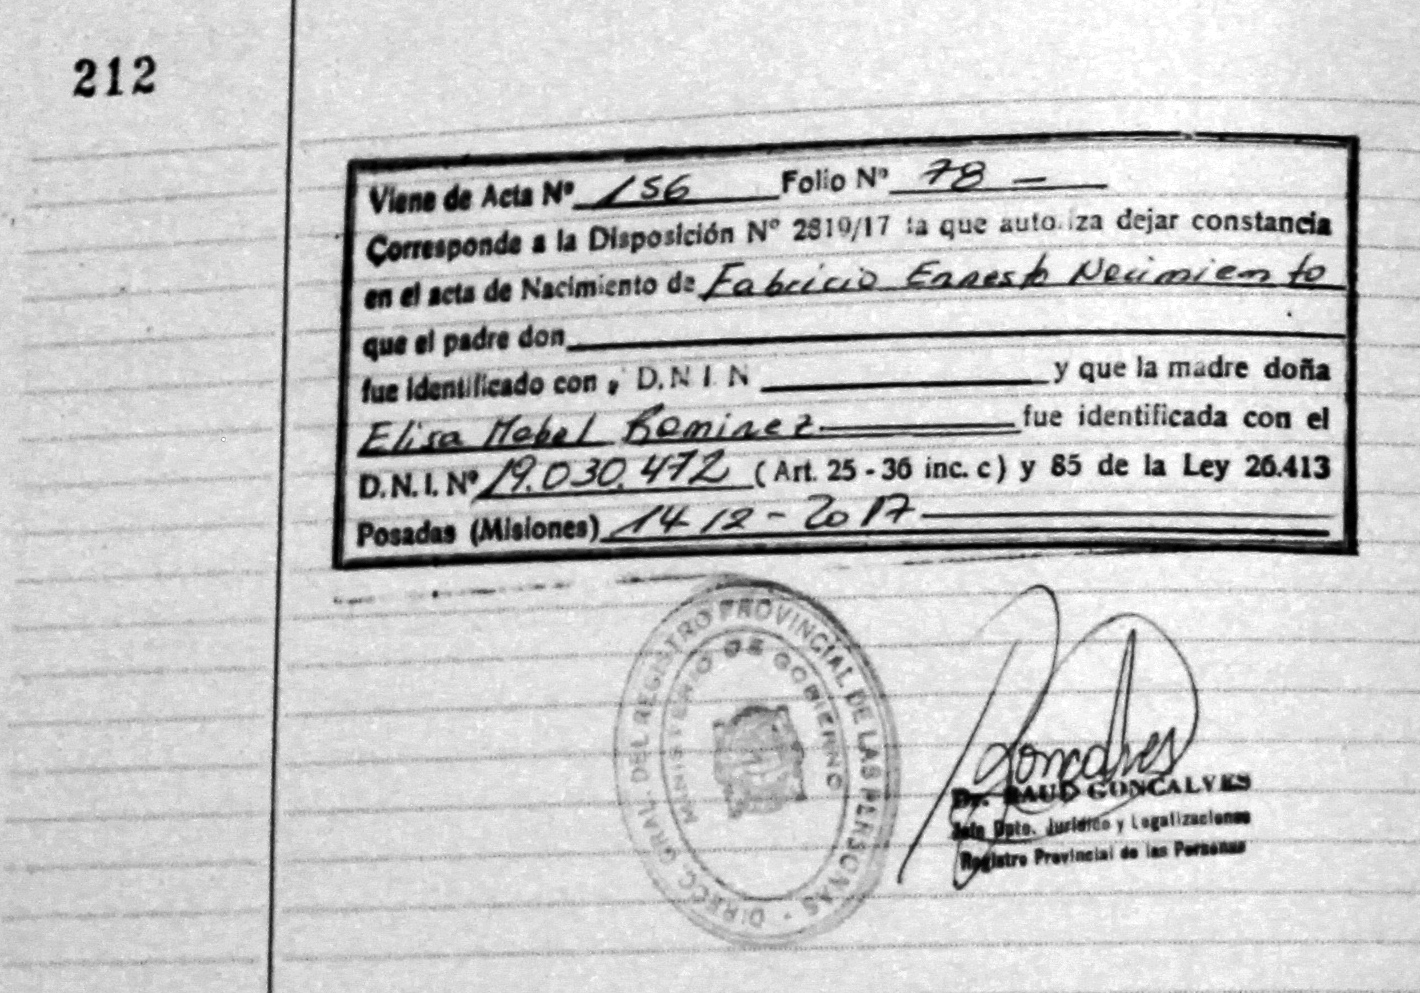 212
Viene de Acta Nº 156 Folio Nº 78 —
Corresponde a la Disposición Nº 2819/17 la que autoriza dejar constancia
en el acta de Nacimiento de Fabricio Ernesto Necimiento
que el padre don
fue identificado con D.N.I. N y que la madre doña
Elisa Mabel Ramirez fue identificada con el
D.N.I. Nº 19.030.472 (Art. 25 - 36 inc. c) y 85 de la Ley 26.413
Posadas (Misiones) 14 12 - 2017
DIRECC. GRAL. DEL REGISTRO PROVINCIAL DE LAS PERSONAS
MINISTERIO DE GOBIERNO
Goncalves
Dr. RAUD GONCALVES
Jefe Dpto. Jurídico y Legalizaciones
Registro Provincial de las Personas